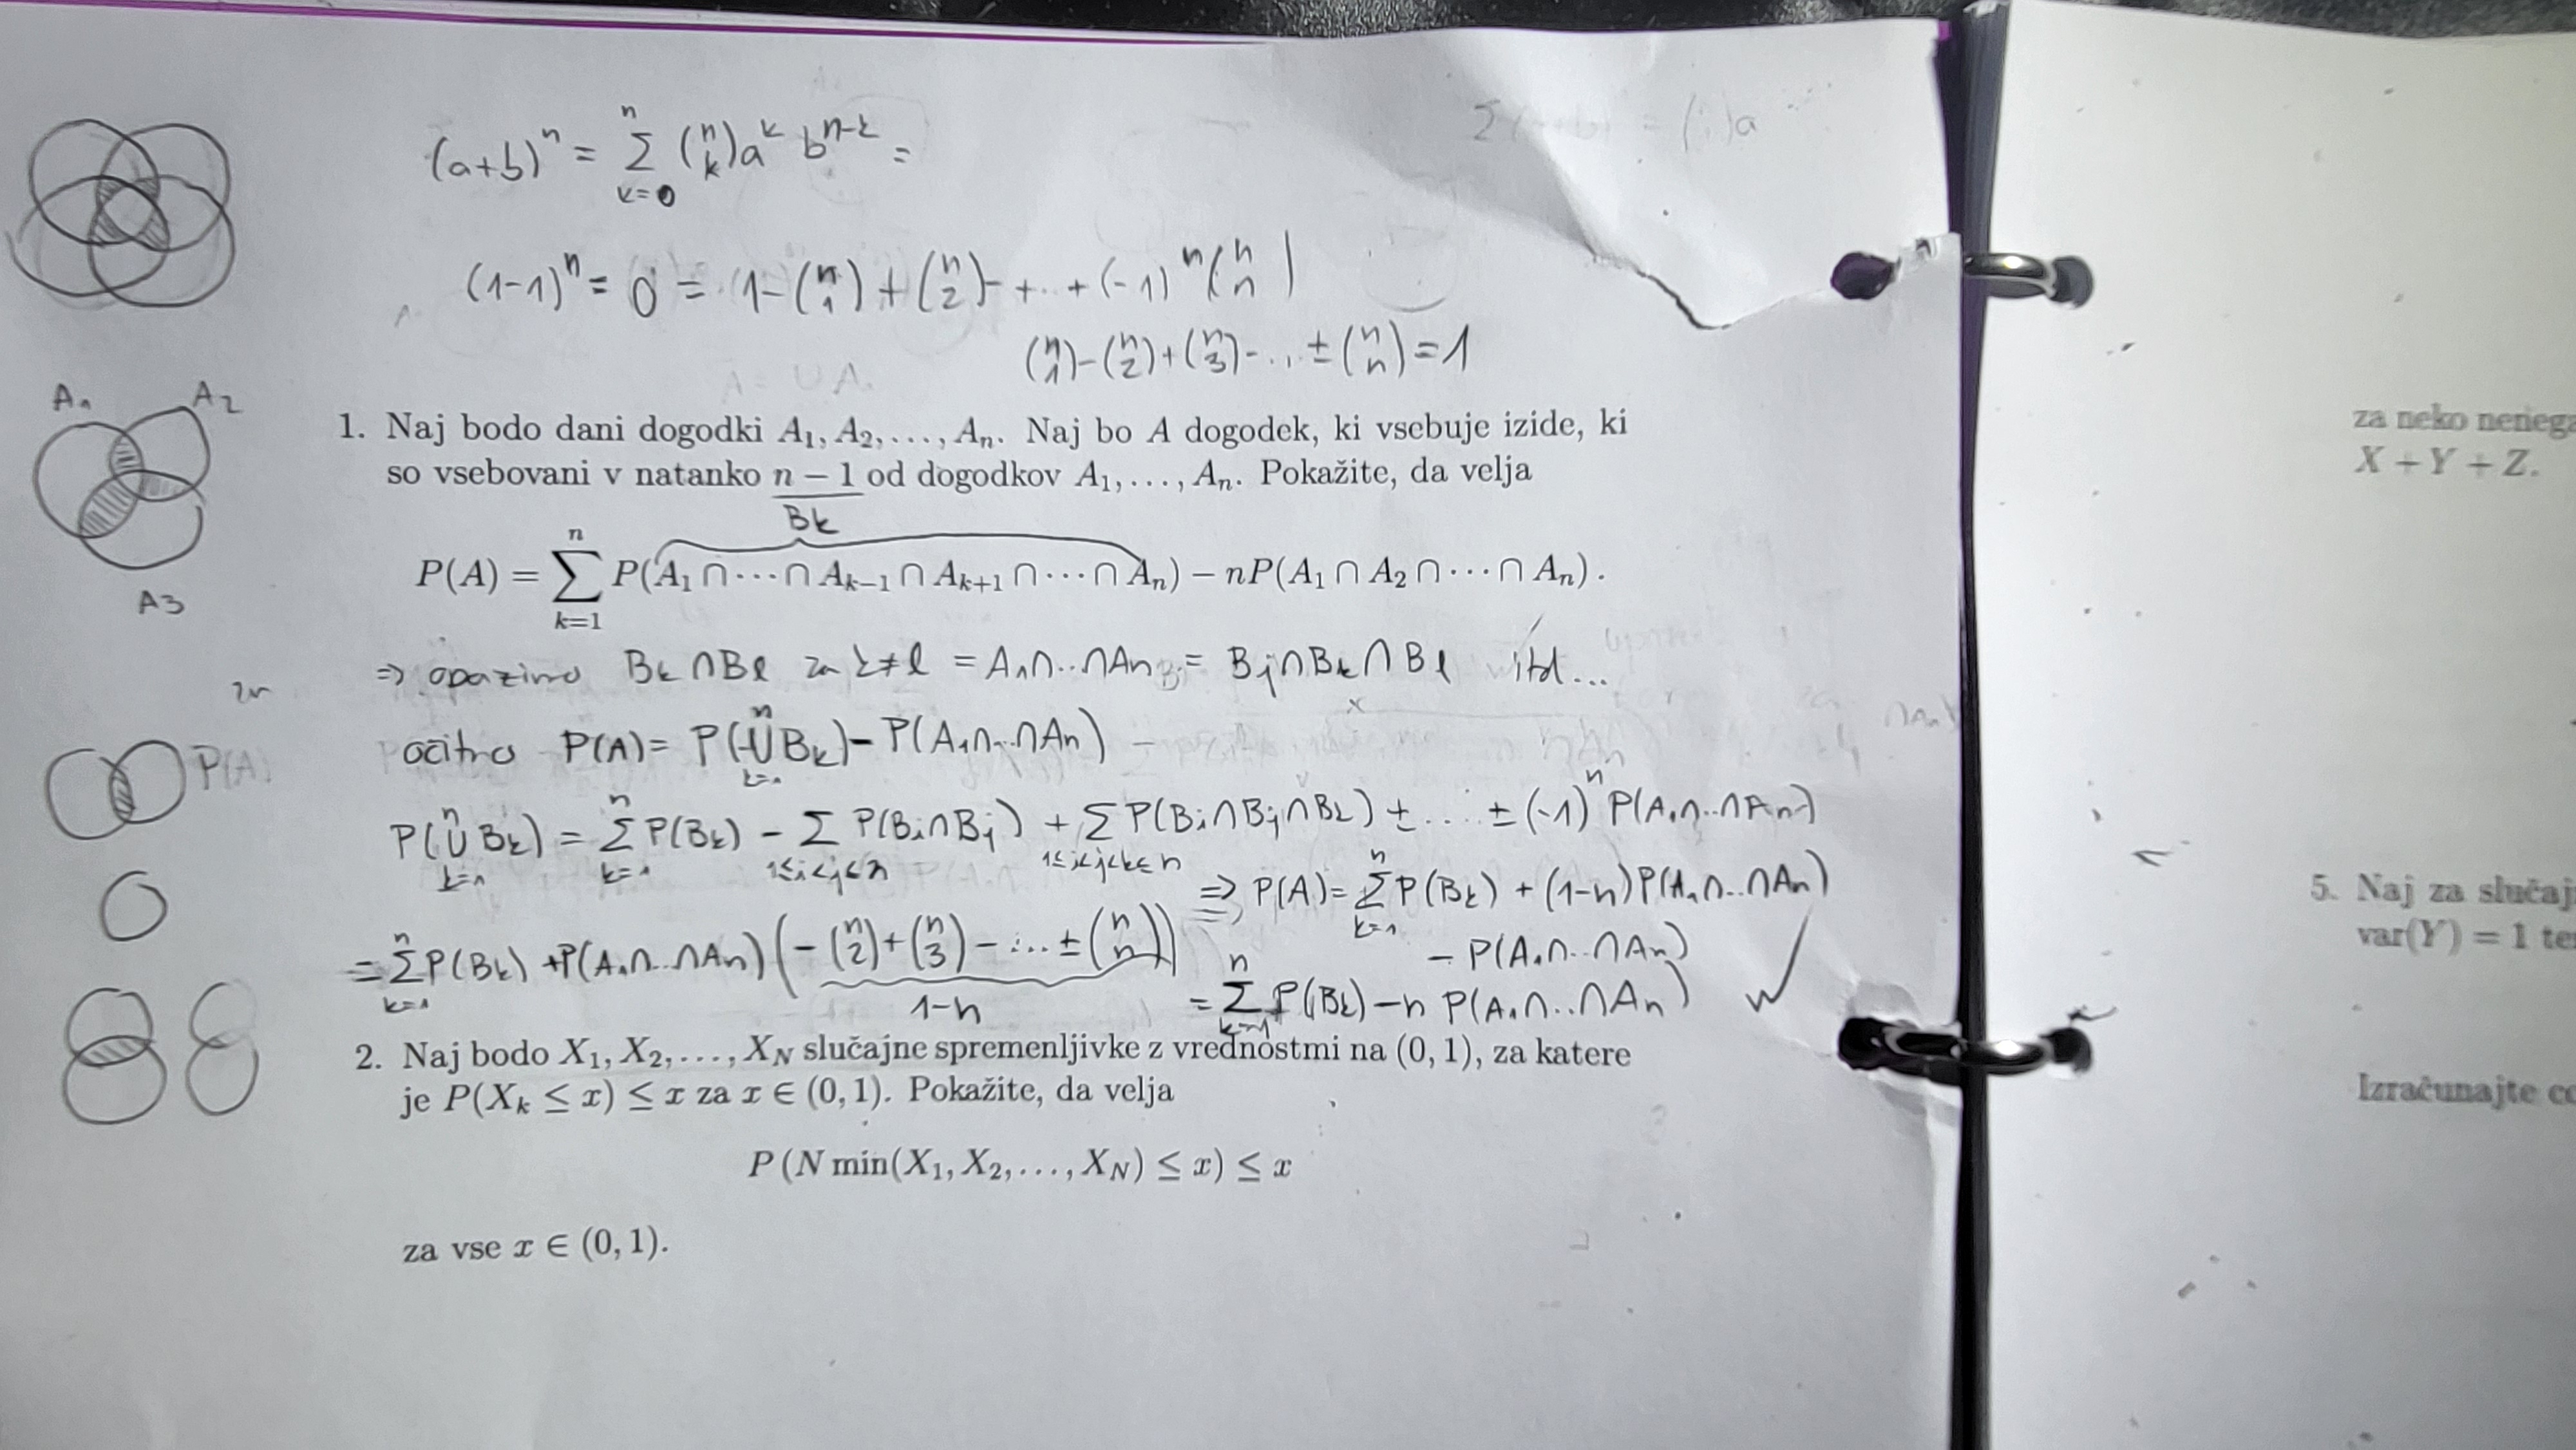 (a+b)^n = Σ_{k=0}^{n} (n k) a^k b^{n-k} =
(1-1)^n = 0 = 1 - (n 1) + (n 2) - + .. + (-1)^n (n n)
(n 1) - (n 2) + (n 3) - .. ± (n n) = 1
A1
A2
A3
1. Naj bodo dani dogodki A₁, A₂, …, Aₙ. Naj bo A dogodek, ki vsebuje izide, ki
so vsebovani v natanko n − 1 od dogodkov A₁, …, Aₙ. Pokažite, da velja
Bk
P(A) = Σ_{k=1}^{n} P(A₁ ∩ ⋯ ∩ A_{k−1} ∩ A_{k+1} ∩ ⋯ ∩ Aₙ) − nP(A₁ ∩ A₂ ∩ ⋯ ∩ Aₙ).
⇒ opazimo Bk ∩ Bl za k≠l = A1∩..∩An = Bj∩Bk∩Bl itd...
očitno P(A) = P(∪_{k=1}^{n} Bk) - P(A1∩..∩An)
P(A)
P(∪_{k=1}^{n} Bk) = Σ_{k=1}^{n} P(Bk) - Σ_{1≤i<j≤n} P(Bi∩Bj) + Σ_{1≤i<j<k≤n} P(Bi∩Bj∩Bk) ± ... ± (-1)^n P(A1∩..∩An)
= Σ_{k=1}^{n} P(Bk) + P(A1∩..∩An) (- (n 2) + (n 3) - ... ± (n n))
1-n
⇒ P(A) = Σ_{k=1}^{n} P(Bk) + (1-n) P(A1∩..∩An)
- P(A1∩..∩An)
= Σ_{k=1}^{n} P(Bk) - n P(A1∩..∩An) ✓
2. Naj bodo X₁, X₂, …, X_N slučajne spremenljivke z vrednostmi na (0, 1), za katere
je P(X_k ≤ x) ≤ x za x ∈ (0, 1). Pokažite, da velja
P(N min(X₁, X₂, …, X_N) ≤ x) ≤ x
za vse x ∈ (0, 1).
za neko
X + Y + Z.
5. Naj za
var(Y) = 1
Izračunajte